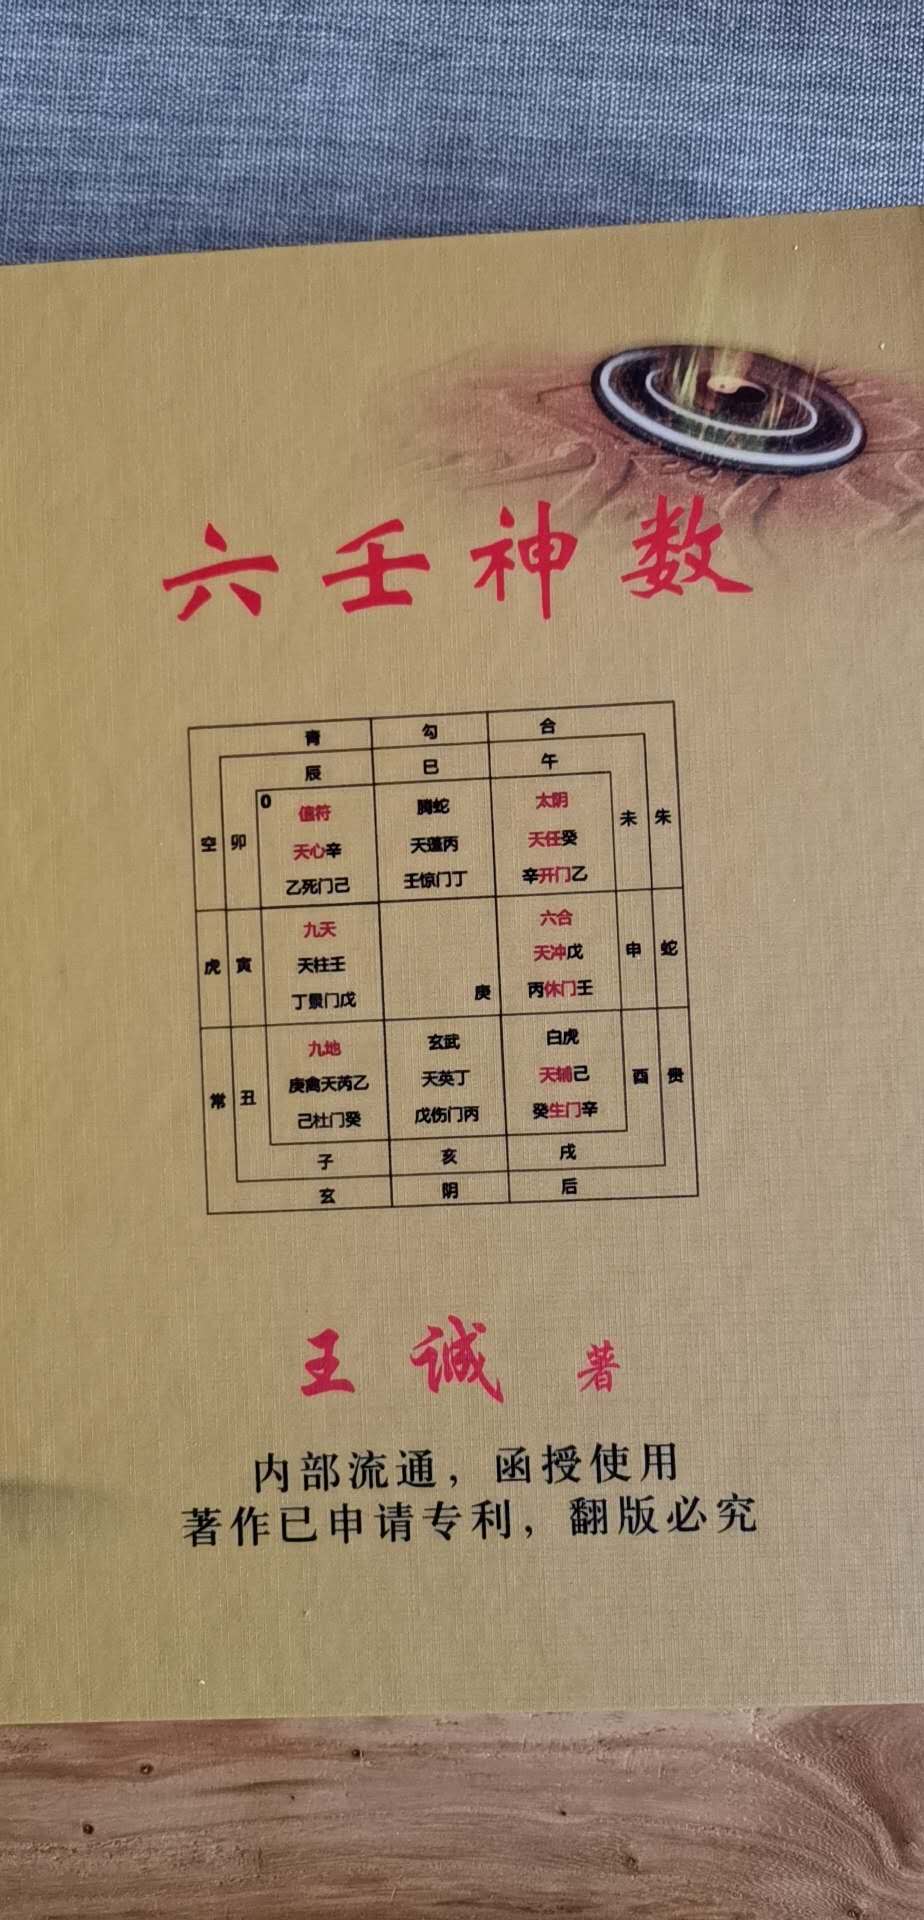 六壬神数
青 勾 合
辰 巳 午
0 值符 腾蛇 太阴
空 卯 天心辛 天蓬丙 天任癸 未 朱
乙死门己 壬惊门丁 辛开门乙
九天 六合
虎 寅 天柱壬 天冲戊 申 蛇
丁景门戊 庚 丙休门壬
九地 玄武 白虎
常 丑 庚禽天芮乙 天英丁 天辅己 酉 贵
己杜门癸 戊伤门丙 癸生门辛
子 亥 戌
玄 阴 后
王诚 著
内部流通，函授使用
著作已申请专利，翻版必究